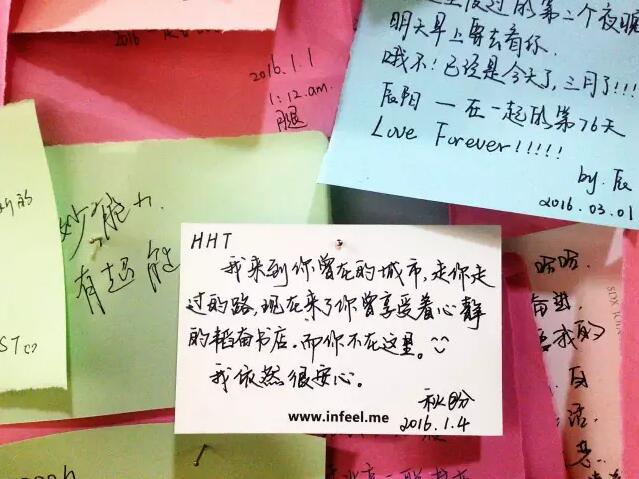 的第二个夜晚
明天早上要去看你.
哦不!已经是今天了,三月了!!!
辰阳一在一起的第76天
Love Forever!!!!!
by.辰
2016.03.01
2016.1.1
1:12.am.
腿
的
ST
能力.
有超能
HHT
我来到你曾在的城市,走你走
过的路,现在来了你曾享受着心静
的韬奋书店.而你不在这里。
我依然很安心。
秋盼
2016.1.4
www.infeel.me
哈哈.
我的
活